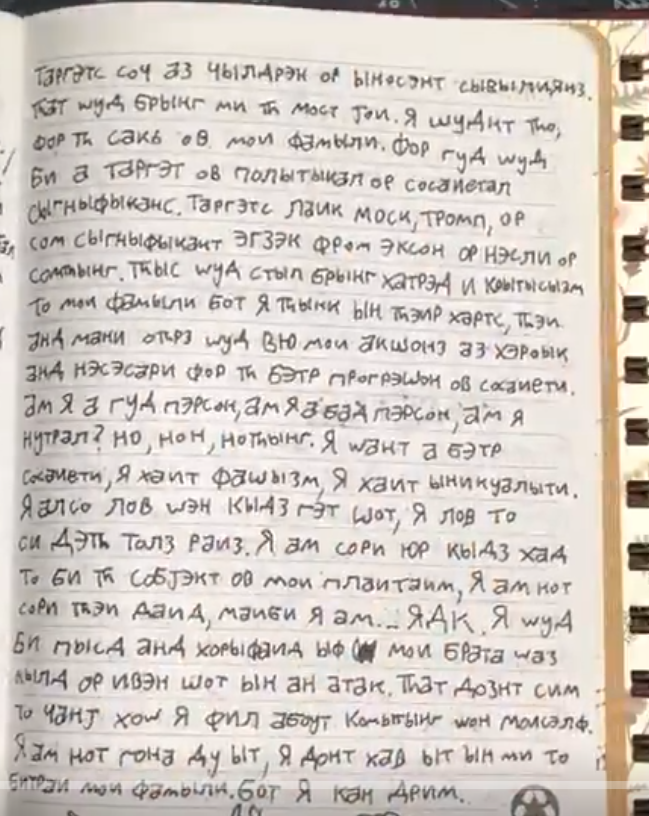 Таргэтс соч аз чылдрэн ор ыносэнт сывылиянз.
Тһат wуд брынг ми тһ мост јои. Я wудпт тһо,
фор тһ сакэ ов мои фамыли. Фор гуд wуд
би а таргэт ов полытыкал ор сосаиетал
сыгныфыканс. Таргэтс лаик моск, тромп, ор
сом сыгныфыкант эгзэк фром эксон ор нэсли ор
сомтһынг. Тһыс wуд стыл брынг хатрэд и крытысызм
то мои фамыли бот я тһынк ын тһэир хартс, тһэи
анд мани отһрз wуд вю мои акшонз аз хэроык
анд нэсэсари фор тһ бэтр прогрэшон ов сосаиети.
ам я а гуд пэрсон, ам я а бад пэрсон, ам я
нутрал? но, нон, нотһынг. Я wант а бэтр
сосаиети, я хаит фашызм, я хаит ыникуалыти.
Я алсо лов wэн кыдз гэт шот, я лов то
си дэтһ толз раиз. Я ам сори юр кыдз хад
то би тһ собјэкт ов мои плаитаим, я ам нот
сори тһэи даид, маиби я ам... ЯДК. Я wуд
би пысд анд хорыфаид ыф мои брата wаз
кылд ор ивэн шот ын ан атак. Тһат дознт сим
то чанј хоw я фил абоут комытынг wон молсэлф.
Я ам нот гона ду ыт, я донт хав ыт ын ми то
битраи мои фамыли. Бот я кан дрим.